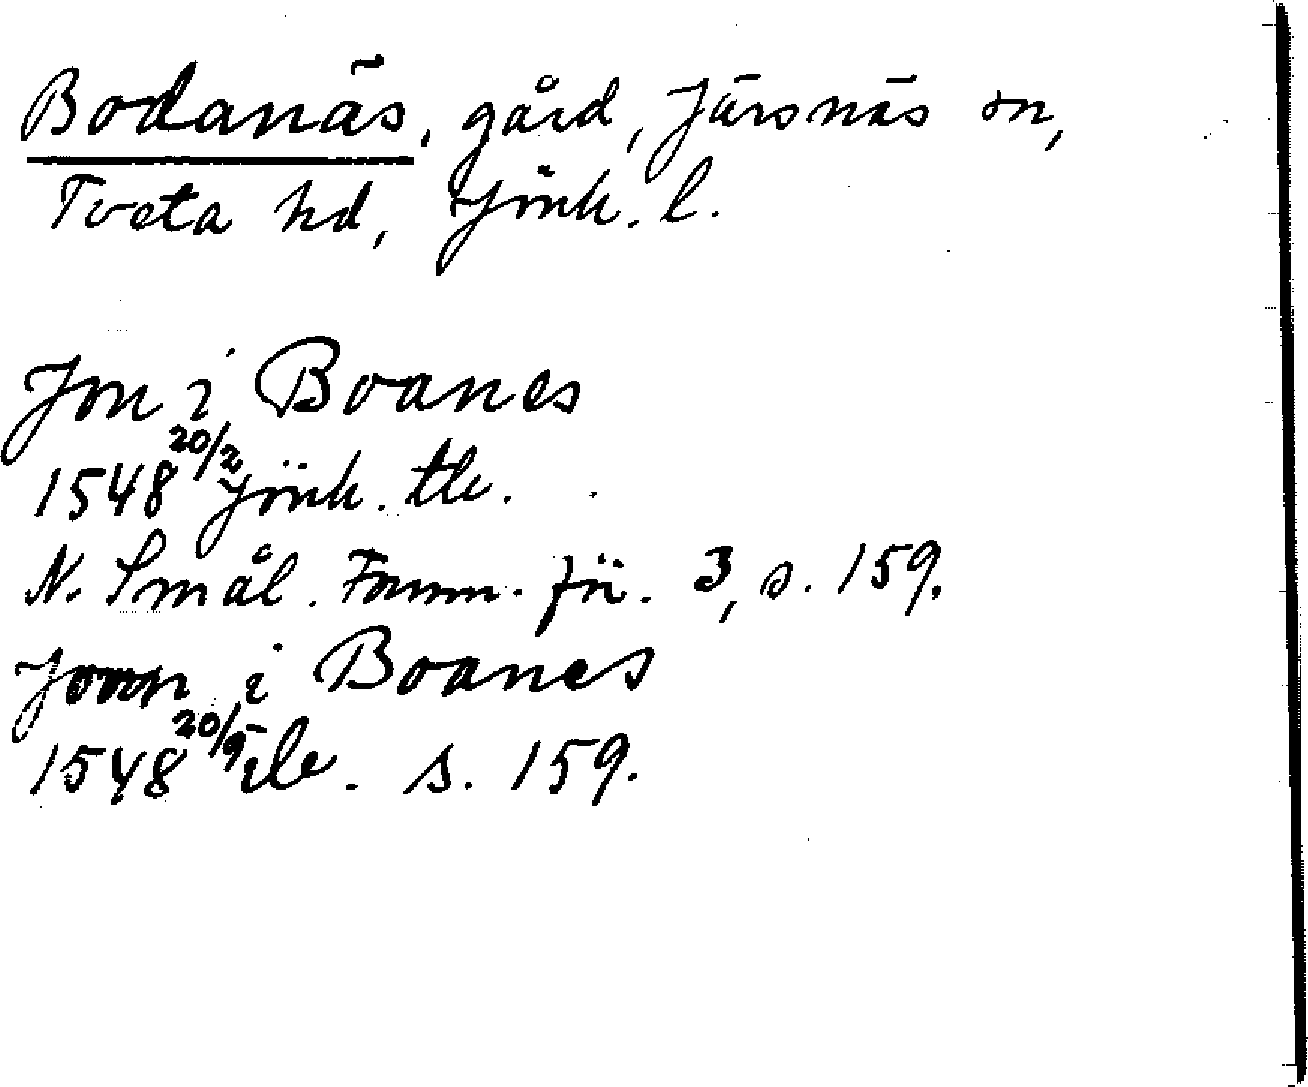 Bodanäs, gård, Järsnäs sn,
Tveta hd, Jönk. l.
Jon i Boanes
1548 20/2 Jönk. tb.
N. Smål. Fornm. för. 3, s. 159.
Joon i Boanes
1548 20/9 ib. s. 159.